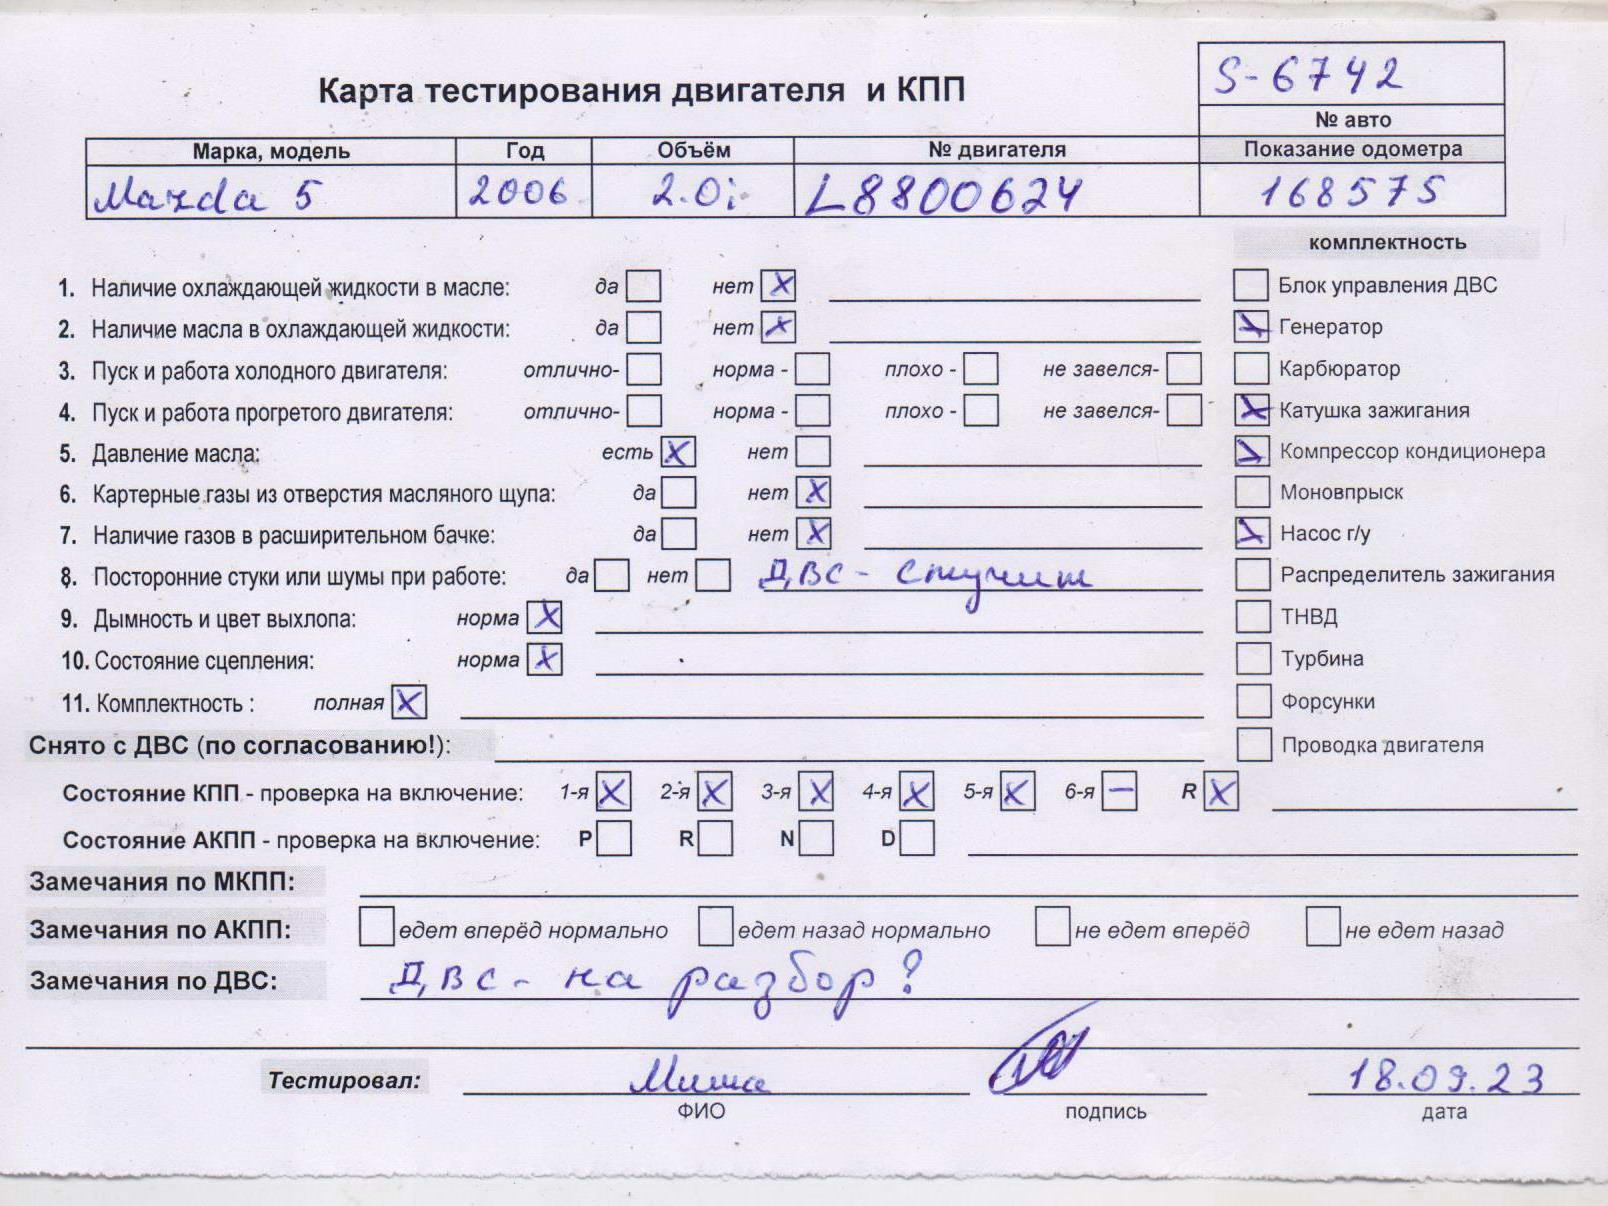 S-6742
Карта тестирования двигателя и КПП
№ авто
Марка, модель Год Объём № двигателя Показание одометра
Mazda 5 2006 2.0i L8800624 168575
комплектность
1. Наличие охлаждающей жидкости в масле: да нет X Блок управления ДВС
2. Наличие масла в охлаждающей жидкости: да нет X Генератор
3. Пуск и работа холодного двигателя: отлично- норма - плохо - не завелся- Карбюратор
4. Пуск и работа прогретого двигателя: отлично- норма - плохо - не завелся- Катушка зажигания
5. Давление масла: есть X нет Компрессор кондиционера
6. Картерные газы из отверстия масляного щупа: да нет X Моновпрыск
7. Наличие газов в расширительном бачке: да нет X Насос г/у
8. Посторонние стуки или шумы при работе: да нет ДВС - стучит Распределитель зажигания
9. Дымность и цвет выхлопа: норма X ТНВД
10. Состояние сцепления: норма X Турбина
11. Комплектность : полная X Форсунки
Снято с ДВС (по согласованию!): Проводка двигателя
Состояние КПП - проверка на включение: 1-я X 2-я X 3-я X 4-я X 5-я X 6-я – R X
Состояние АКПП - проверка на включение: P R N D
Замечания по МКПП:
Замечания по АКПП: едет вперёд нормально едет назад нормально не едет вперёд не едет назад
Замечания по ДВС: ДВС - на разбор?
Тестировал: Миша 18.09.23
ФИО подпись дата